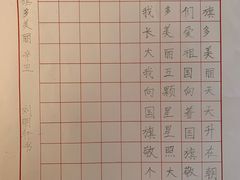 旗多美丽天天升在朝
们爱祖国向着国旗敬
多美丽互颗星星照大
我长大我向国旗敬个
旗多美丽
刘明
书